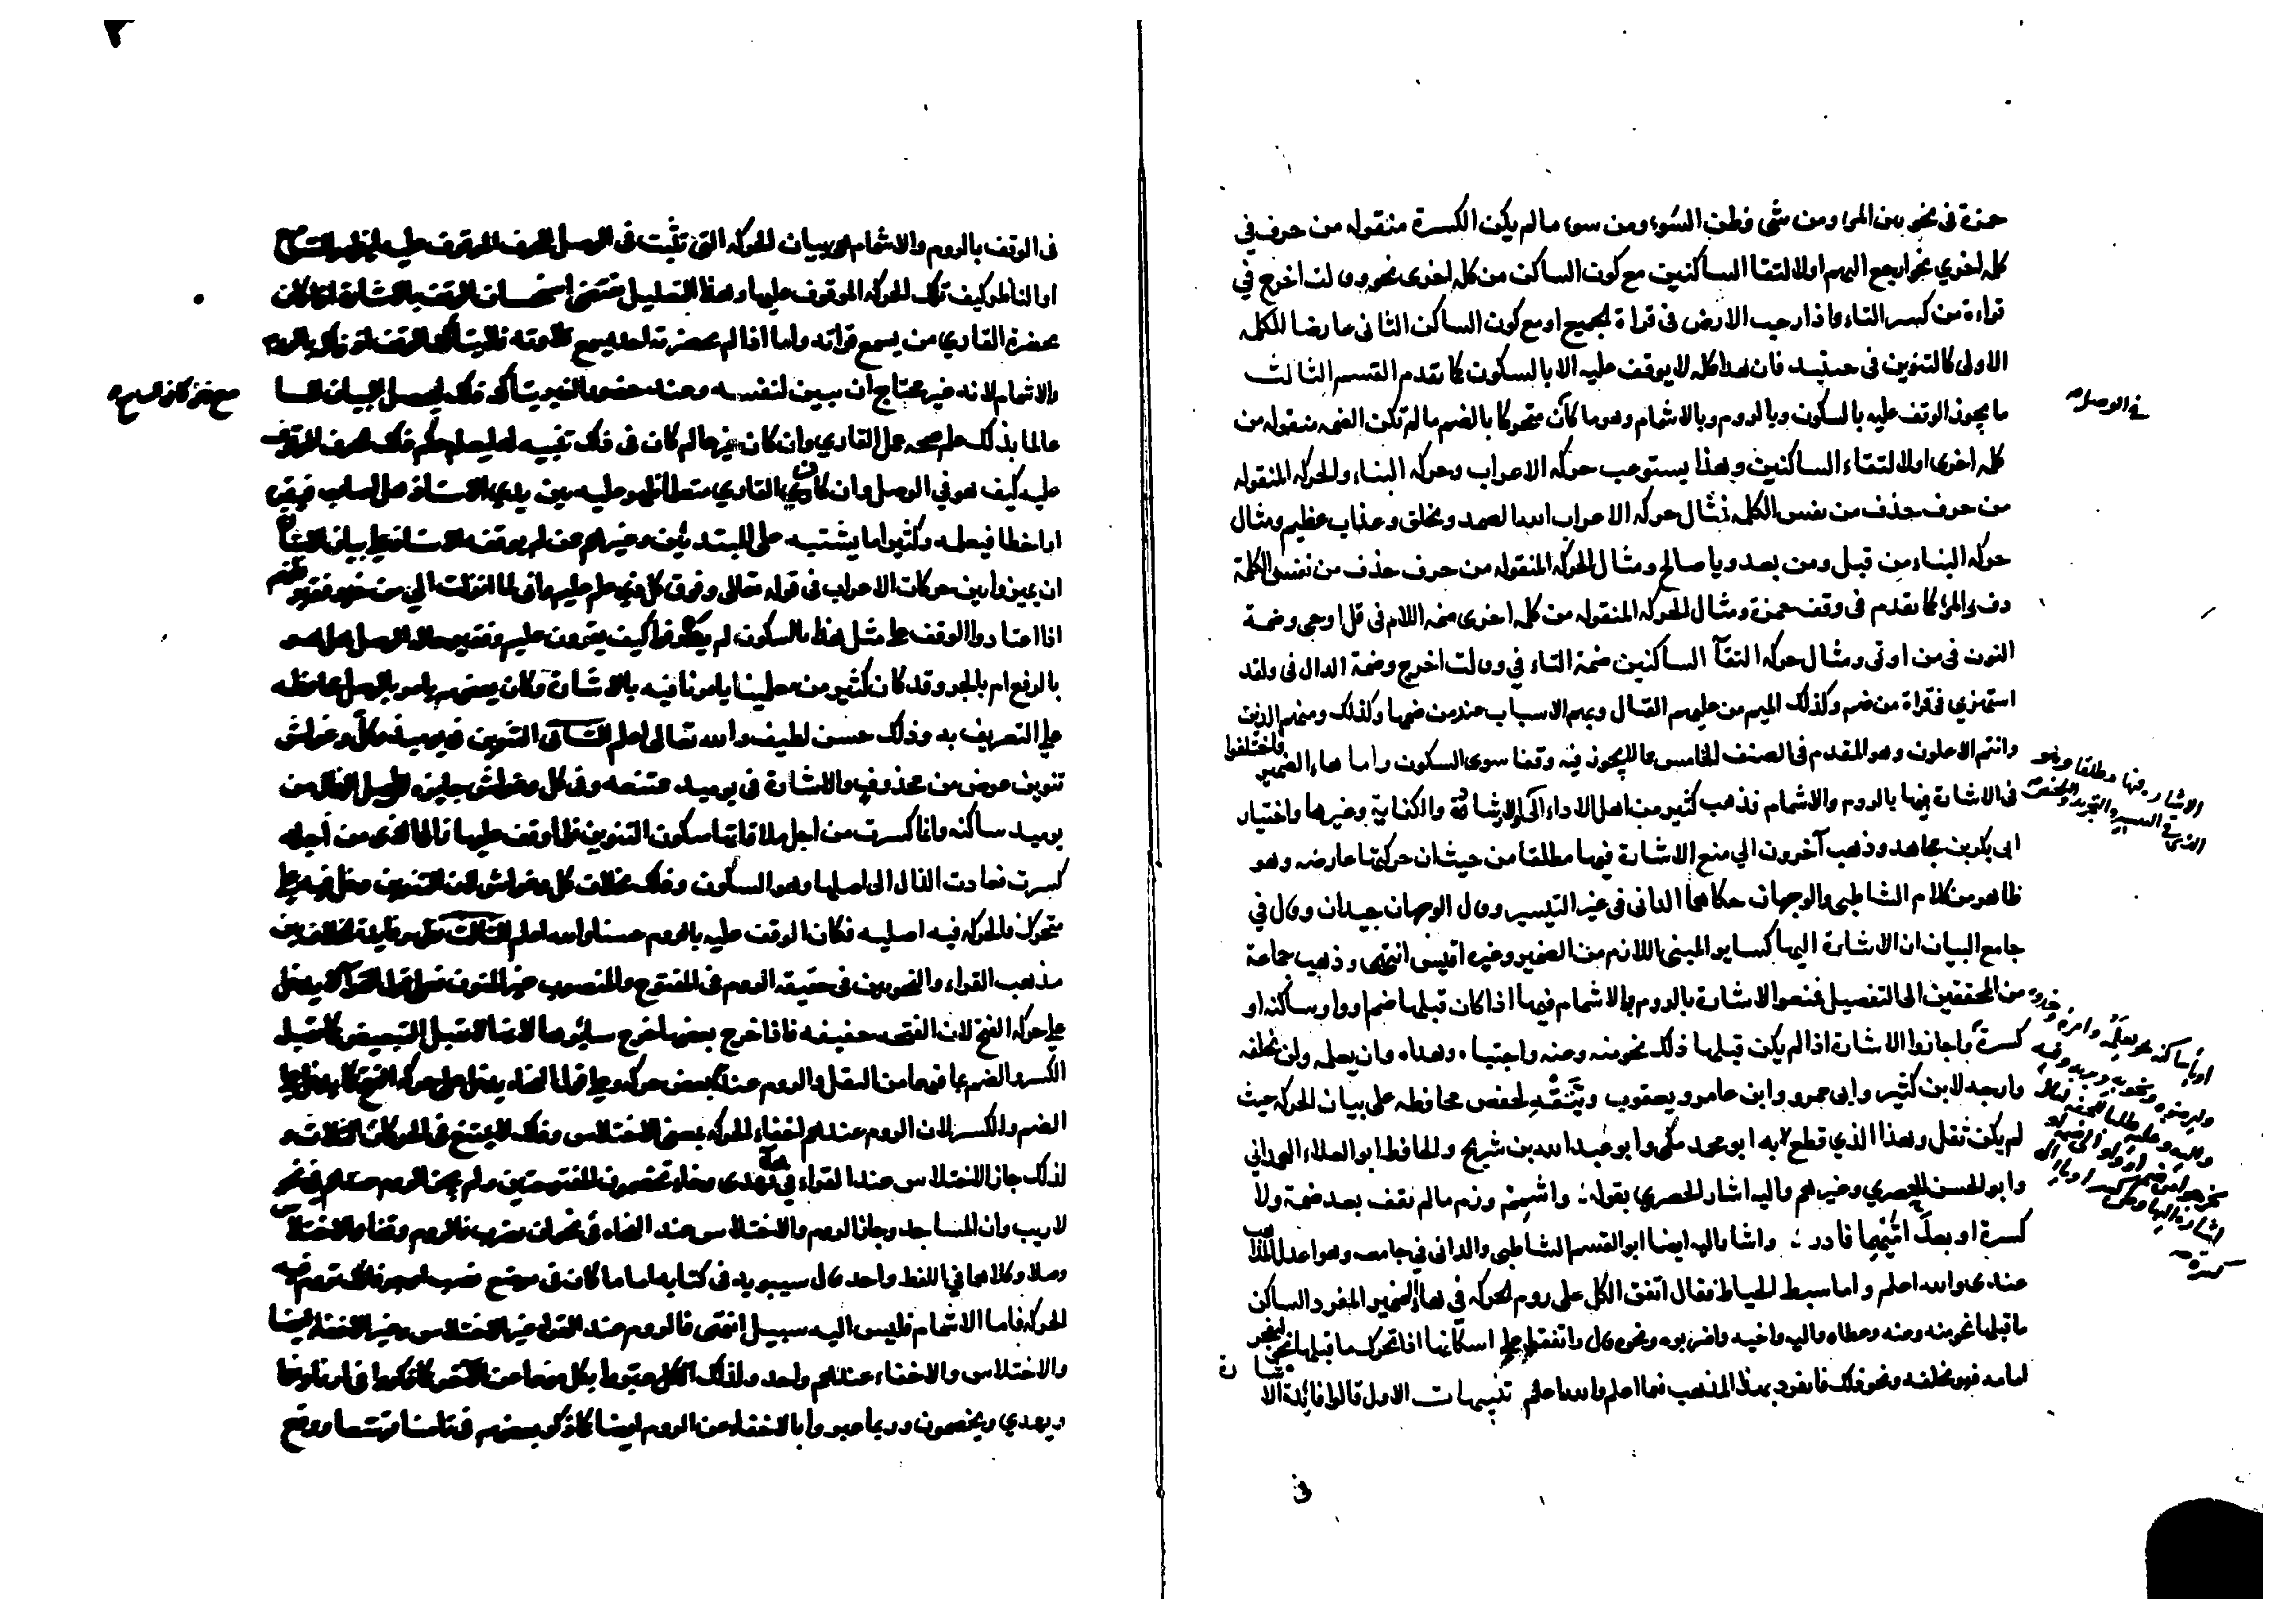 حمزة فى نحو بين المرء ومن شئ وظن السوء ومن سوء ما لم يكن الكسرة منقوله من حرف فى
كله اخرى نحو ارجع اليهم او لالتقا الساكنين مع كون الساكن من كله اخرى نحو وقالت اخرج فى
قراءة من كسر التاء واذا رجت الارض فى قراءة الجميع او مع كون الساكن الثانى عارضا للكله
الاولى كالتنوين فى حينئيذ فان هذا كله لا يوقف عليه الا بالسكون كما تقدم القسم الثالث
ما يجوز الوقف عليه بالسكون وبالروم وبالاشمام وهو ما كان متحركا بالضم ما لم تكن الضمه منقوله من
فى الوصل
كله اخرى او لالتقاء الساكنين وهذا يستوعب حركه الاعراب وحركه البناء والحركه المنقوله
من حرف حذف من نفس الكله فمثال حركه الاعراب الله الصمد ويخلق وعذاب عظيم ومثال
حركه البناء من قبل ومن بعد ويا صالح ومثال الحركه المنقوله من حرف حذف من نفس الكلمة
دفء والمرء كما تقدم فى وقف حمزة ومثال الحركه المنقوله من كله اخرى ضمه اللام فى قل اوحى وضمة
النون فى من اوتى ومثال حركه التقآ الساكنين ضمة التاء فى وقالت اخرج وضمة الدال فى ولقد
استهزئ فى قراة من ضم وكذلك الميم من عليهم القتال وبهم الاسباب عند من ضمها وكذلك ومنهم الذين
وانتم الاعلون وهو المقدم فى الصنف الخامس مما لا يجوز فيه وقفا سوى السكون واما هاء الضمير فاختلفوا
فى الاشارة فيها بالروم والاشمام فذهب كثير من اهل الاداء الى الاشارة والكفاية وغيرها واختيار
الاشارة فيها مطلقا وهو الذى فى التيسير والتجريد والتلخيص
ابى بكر بن مجاهد وذهب آخرون الي منع الاشارة فيها مطلقا من حيث ان حركتها عارضه وهو
ظاهر من كلام الشاطبى والوجهان حكاهما الدانى فى غير التيسير وقال الوجهان جيدان وقال فى
جامع البيان ان الاشارة اليها كسائر المبنى اللازم من الضمير وغيره اقيس انتهى وذهب جماعة
من المحققين الى التفصيل فمنعوا الاشارة بالروم والاشمام فيها اذا كان قبلها ضم او واو ساكنه او
كسرة واجازوا الاشارة اذا لم يكن قبلها ذلك نحو منه وعنه واجتباه وهداه وان يعلمه ولن تخلفه
وارجه لابن كثير وابى عمرو وابن عامر ويعقوب ويتقه لحفص محافظه على بيان الحركه حيث
لم يكن ثقل وهذا الذي قطع به ابو محمد مكى وابو عبد الله بن شريح والحافظ ابو العلاء الهمدانى
وابو الحسن الحصري وغيرهم واليه اشار الحصري بقوله واشمم ورم ما لم تقف بعد ضمة ولا
كسرة او بعد اميهما فادر واشار اليه ايضا ابو القسم الشاطبى والدانى فى جامعه وهو اعدل المذاهب
عندى والله اعلم واما سبط الخياط فقال اتفق الكل على روم الحركه فى هاء الضمير المفرد الساكن
ما قبلها نحو منه وعنه وعصاه واليه واخيه واضربوه ونحوه قال واتفقوا على اسكانها اذا تحرك ما قبلها نحو ليفجر
امامه فهو يخلفه ونحو ذلك فانفرد بهذا المذهب فيما اعلم والله اعلم تنبيهات الاول قالوا فائدة الاشارة
فى
٢
فى الوقف بالروم والاشمام هى بيان الحركه التى تثبت فى الوصل للحرف الموقوف عليه ليظهر للسامع
او الناظر كيف تلك الحركه الموقوف عليها وهذا التعليل مقتضى استحسان الوقف بالاشارة اذا كان
بحضرة القاري من يسمع قراته واما اذا لم يحضرته احد يسمع تلاوته فلا يتأكد الوقف اذ ذاك بالروم
والاشمام لانه غير محتاج ان يبين لنفسه وعند حضور الغير يتأكد ذلك ليحصل البيان للسامع
عالما بذلك علم صحه عمل القاري وان كان غير عالم كان فى ذلك تنبيه له ليعلم حكم ذلك الحرف الموقوف
عليه كيف هو فى الوصل وان كان القاري متعلما ظهر عليه بين يدي الاستاذ هل اصاب فيقره
او اخطا فيعلمه وكثيرا ما يشتبه على المبتدئين وغيرهم ممن لم يوقفه الاستاذ على بيان الاشارة
ان يميزوا بين حركات الاعراب فى قوله تعالى وفوق كل ذي علم عليم وانى لما انزلت الي من خير فقير
اذا اعتادوا الوقف على مثل هذا بالسكون لم يعرفوا كيف يقرون عليم وفقير حال الوصل هل هو
بالرفع ام بالجر وقد كان كثير من معلمينا يامرنا فيه بالاشارة وكان بعضهم يامر بالوصل محافظه
على التعريف به وذلك حسن لطيف والله تعالى اعلم الثانى التنوين فى يوميذ وكل وغواش
تنوين عوض من محذوف والاشارة فى يوميذ ممتنعه وفى كل وغواش جايزه لان اصل الذال من
يوميذ ساكنه وانما كسرت من اجل ملاقاتها سكون التنوين فلما وقف عليها زال الذى من اجله
كسرت فعادت الذال الى اصلها وهو السكون وذلك بخلاف كل وغواش لان التنوين دخل فيه على
متحرك فالحركه فيه اصليه فكان الوقف عليه بالروم حسنا والله اعلم الثالث تظهر فايدة الخلاف بين
مذهب القراء والنحويين فى حقيقه الروم فى المفتوح والمنصوب غير المنون فعلى قول القراء لا يدخل
على حركه الفتح لان الفتحه خفيفه فاذا خرج بعضها خرج سايرها لانها لا تقبل التبعيض كما يقبله
الكسر والضم بما فيهما من الثقل والروم عندهم بعض حركه وعلى قول النحاه يدخل على حركه الفتح كما يدخل على
الضم والكسر لان الروم عندهم اخفاء الحركه بمعنى الاختلاس وذلك لا يمتنع فى الحركات الثلاث و
لذلك جاز الاختلاس عند القراء فى هاء يهدى وخاء يخصمون المفتوحتين ولم يجز الروم عندهم فى نحو
لا ريب وان المساجد وجاز الروم والاختلاس عند النحاه فى نحو ان يضرب فالروم وقفا والاختلاس
وصلا وكلاهما فى اللفظ واحد قال سيبويه فى كتابه اما ما كان فى موضع نصب او جر فانك تروم فيه
الحركه فاما الاشمام فليس اليه سبيل انتهى فالروم عند القراء غير الاختلاس وغير الاخفاء ايضا
والاختلاس والاخفاء عندهم واحد ولذلك عبروا بكل منهما عن الآخر كما ذكروا فى ارنا ونعما
ويهدي ويخصمون وربما عبروا بالاخفاء عن الروم ايضا كما ذكر بعضهم فى تامنا توسعا ووقع